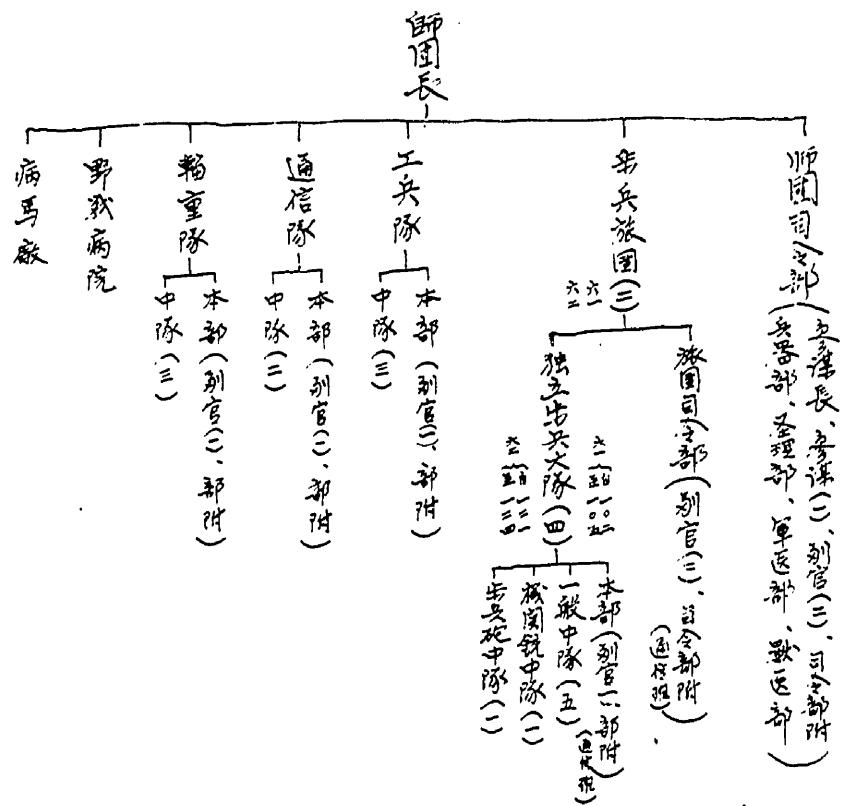 師団長
師団司令部(参謀長、参謀(二)、副官(二)、司令部附
兵器部、経理部、軍医部、獣医部)
歩兵旅団(二)
六一
六二
旅団司令部(副官(二)、司令部附)
(通信班)
独立歩兵大隊(四)
本部(副官(一)、部附)
(通信班)
一般中隊(五)
機関銃中隊(一)
歩兵砲中隊(一)
工兵隊
本部(副官(一)、部附)
中隊(三)
通信隊
本部(副官(一)、部附)
中隊(二)
輜重隊
本部(副官(一)、部附)
中隊(三)
野戦病院
病馬廠